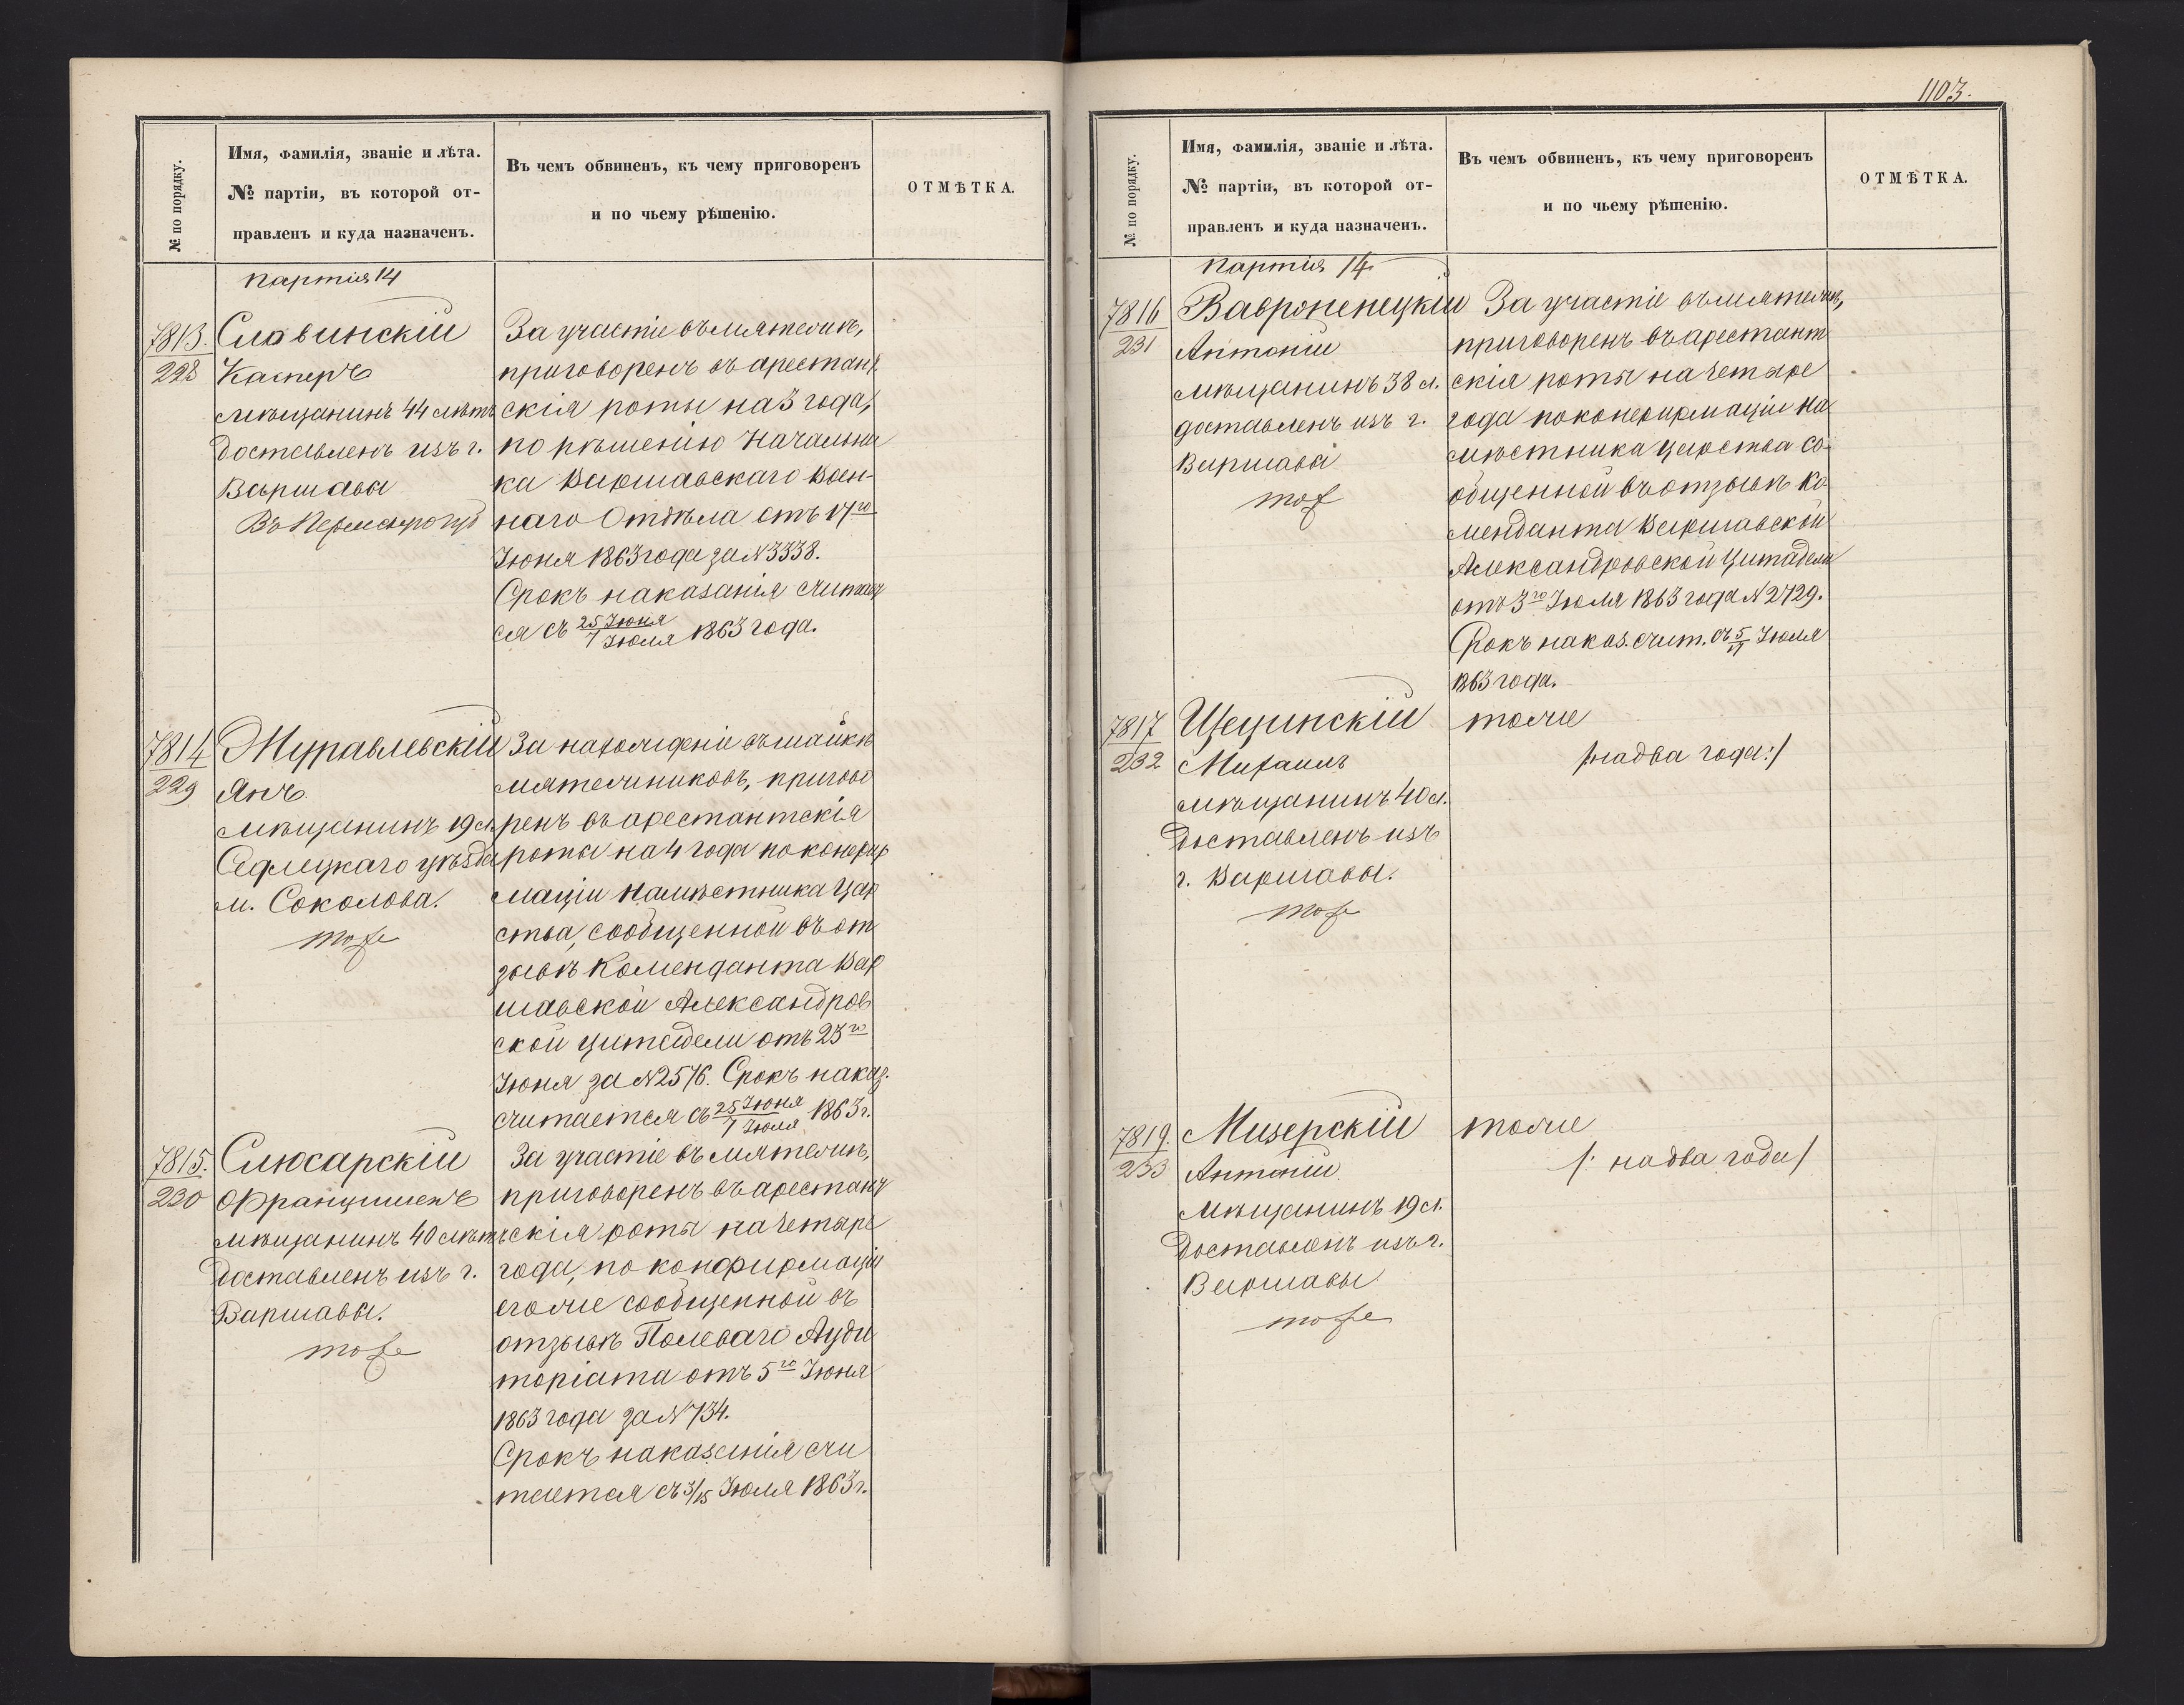 № по порядку.
Имя, фамилія, званіе и лѣта.
№ партіи, въ которой от-
правленъ и куда назначенъ.
Въ чемъ обвиненъ, къ чему приговоренъ
и по чьему рѣшенію.
ОТМѢТКА.
партія 14
7813.
228
Славинскій
Касперъ
мѣщанинъ 44 лѣтъ
доставленъ изъ г.
Варшавы
За участіе въ мятежѣ,
приговоренъ въ арестант
скія роты на 3 года,
по рѣшенію Начальни
ка Варшавскаго Воен-
наго Отдѣла отъ 17го
Іюня 1863 года за №3338.
Срокъ наказанія считает
ся съ 25 Іюня
7 Іюля 1863 года.
7814
229
Журавлевскій
Янъ
мѣщанинъ 19 л.
Седлецкаго уѣзда
м. Соколова.
тоже
За нахожденіе въ шайкѣ
мятежниковъ, пригово
ренъ въ арестантскія
роты на 4 года по конфир
маціи Намѣстника Цар
ства, сообщенной въ от
зывѣ Коменданта Вар
шавской Александров
ской цитадели отъ 23го
Іюня за №2576. Срокъ наказ.
считается съ 25 Іюня
7 Іюля 1863 г.
7815.
230
Слюсарскій
Францишекъ
мѣщанинъ 40 лѣтъ
доставленъ изъ г.
Варшавы.
тоже
За участіе въ мятежѣ,
приговоренъ въ арестант
скія роты на четыре
года, по конфирмаціи
его же сообщенной въ
отзывѣ Полеваго Ауди
торіата отъ 5го Іюня
1863 года за №734.
Срокъ наказанія счи
тается съ 3/15 Іюля 1863 г.
1103.
№ по порядку.
Имя, фамилія, званіе и лѣта.
№ партіи, въ которой от-
правленъ и куда назначенъ.
Въ чемъ обвиненъ, къ чему приговоренъ
и по чьему рѣшенію.
ОТМѢТКА.
партія 14
7816
231
Антоній
мѣщанинъ 38 л.
доставленъ изъ г.
Варшавы
тож
За участіе въ мятежѣ,
приговоренъ въ арестант
скія роты на четыре
года по конфирмаціи На
мѣстника Царства со-
общенной въ отзывѣ Ко-
менданта Варшавской
Александровской Цитадели
отъ 3го Іюля 1863 года №2729.
Срокъ наказ. счит. съ 5/17 Іюля
1863 года.
7817
232
Щецинскій
Михаилъ
мѣщанинъ 40 л.
доставленъ изъ
г. Варшавы.
тоже
тоже
/:на два года:/
7819.
233
Мизерскій
Антоній
мѣщанинъ 19 л.
доставленъ изъ г.
Варшавы
тоже
тоже
/: на два года/